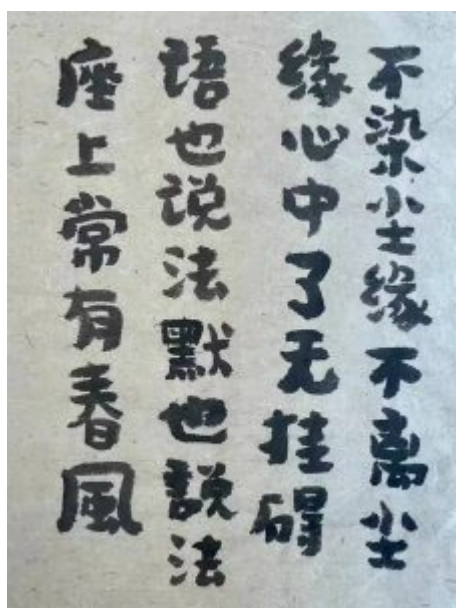 不染尘缘不离尘
缘心中了无挂碍
語也说法默也説法
座上常有春風